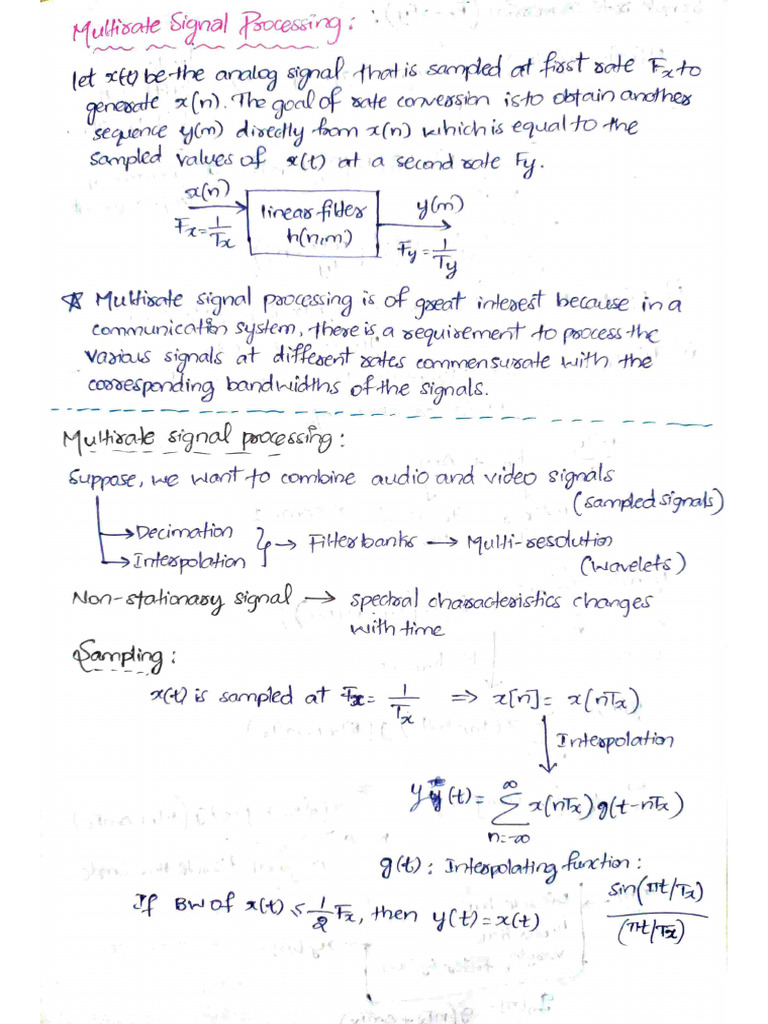 Multirate Signal Processing:
let x(t) be the analog signal that is sampled at first rate Fx to
generate x(n). The goal of rate conversion is to obtain another
sequence y(m) directly from x(n) which is equal to the
sampled values of x(t) at a second rate Fy.
x(n)
Fx = 1/Tx
linear filter
h(n,m)
y(m)
Fy = 1/Ty
☆ Multirate signal processing is of great interest because in a
communication system, there is a requirement to process the
various signals at different rates commensurate with the
corresponding bandwidths of the signals.
Multirate signal processing:
Suppose, we want to combine audio and video signals
(sampled signals)
→ Decimation
→ Interpolation } → Filter banks → Multi-resolution
(wavelets)
Non-stationary signal → spectral characteristics changes
with time
Sampling:
x(t) is sampled at Fx = 1/Tx ⇒ x[n] = x(nTx)
↓ Interpolation
y(t) = ∞ Σ n=-∞ x(nTx) g(t-nTx)
g(t): Interpolating function:
sin(πt/Tx) / (πt/Tx)
If BW of x(t) ≤ 1/2 Fx, then y(t) = x(t)